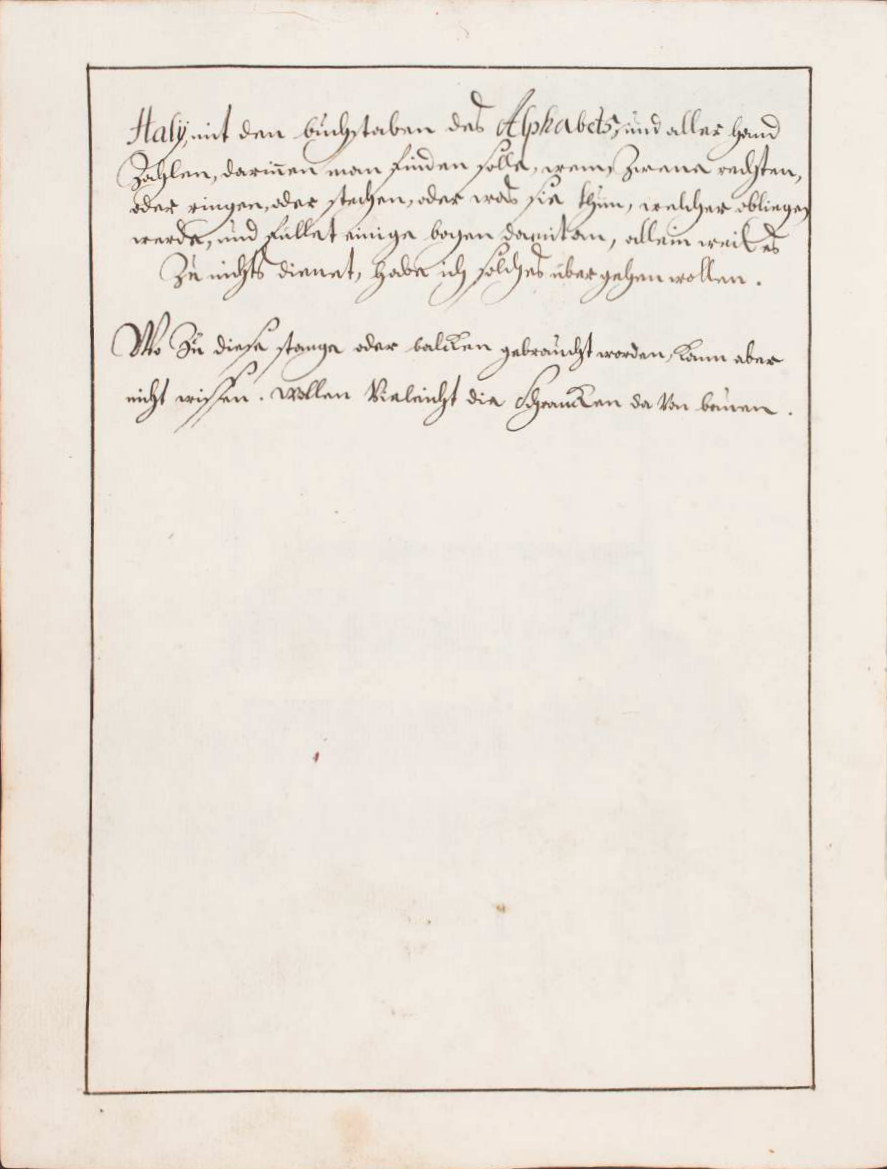 Haly, mit den buchstaben des Alphabets, und aller hand
Zahlen, darinen man finden solle, wenn Zwene rechten,
oder ringen, oder stechen, oder was sie thun, welcher obliegen
werde, und füllet einige bogen damit an, allein weil es
Zu nichts dienet, habe ich solches übergehen wollen.
Wo Zu diese stange oder balcken gebraucht worden, kann aber
nicht wissen. wollen Vieleicht die Schrancken da Von bauen.